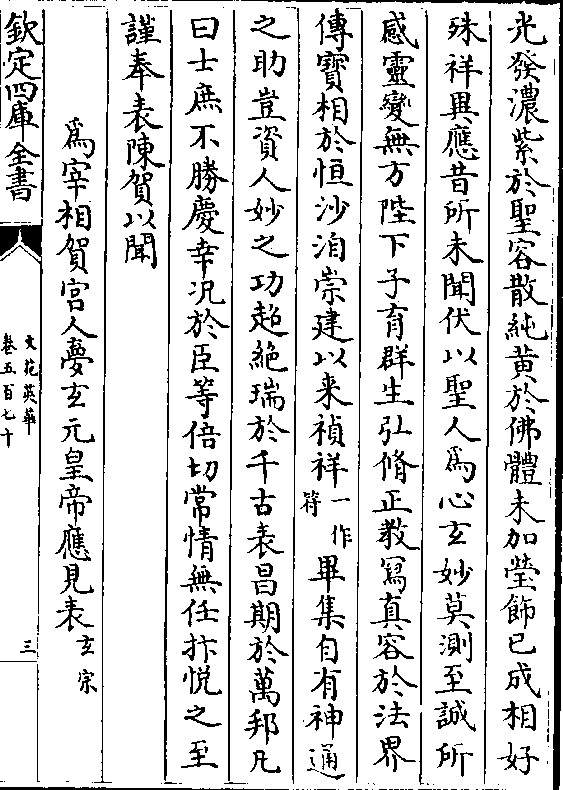 光發濃紫於聖容散純黄於佛體未加瑩飾已成相好
殊祥異應昔所未聞伏以聖人為心玄妙莫測至誠所
感靈變無方陛下子育群生弘脩正教冩真容於法界
傳寶相於恒沙洎崇建以来禎祥一作符畢集自有神通
之助豈資人妙之功超絶瑞於千古表昌期於萬邦凡
曰士庶不勝慶幸况於臣等倍切常情無任抃悦之至
謹奉表陳賀以聞
為宰相賀宮人夢玄元皇帝應見表玄宗
欽定四庫全書
文苑英華
卷五百七十
三